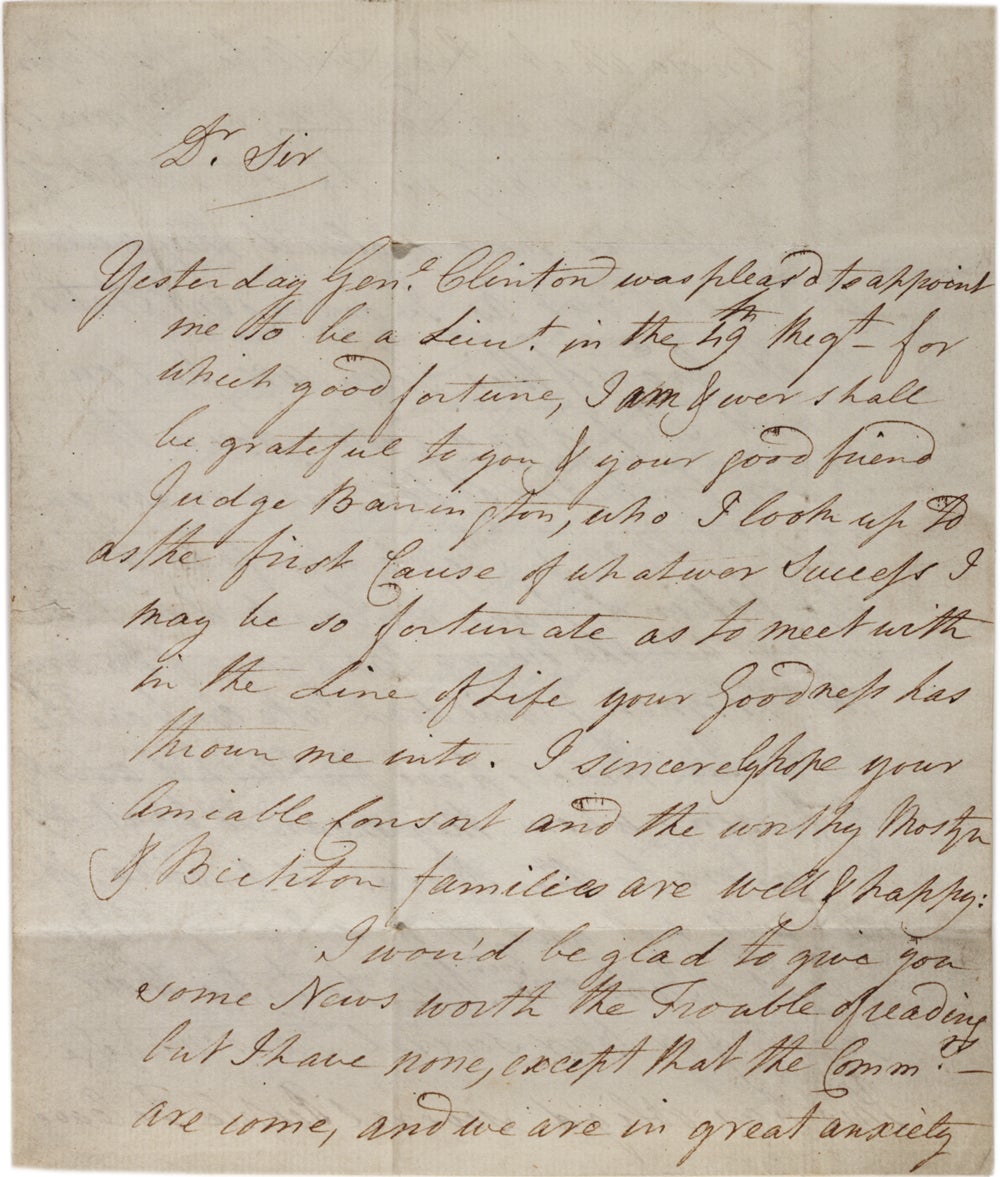 Dr. Sir
Yesterday Genl. Clinton was pleas'd to appoint
me to be a Lieut. in the 49th Regt - for
which good fortune, I am & ever shall
be grateful to you & your good friend
Judge Barrington, who I look up to
as the first Cause of whatever Success I
may be so fortunate as to meet with
in the Line of Life your Goodness has
thrown me into. I sincerely hope your
Amiable Consort and the worthy Mostyn
& families are well & happy:
I wou'd be glad to give you
some News worth the Trouble of reading
but I have none, except that the Commrs. -
are come, and we are in great anxiety